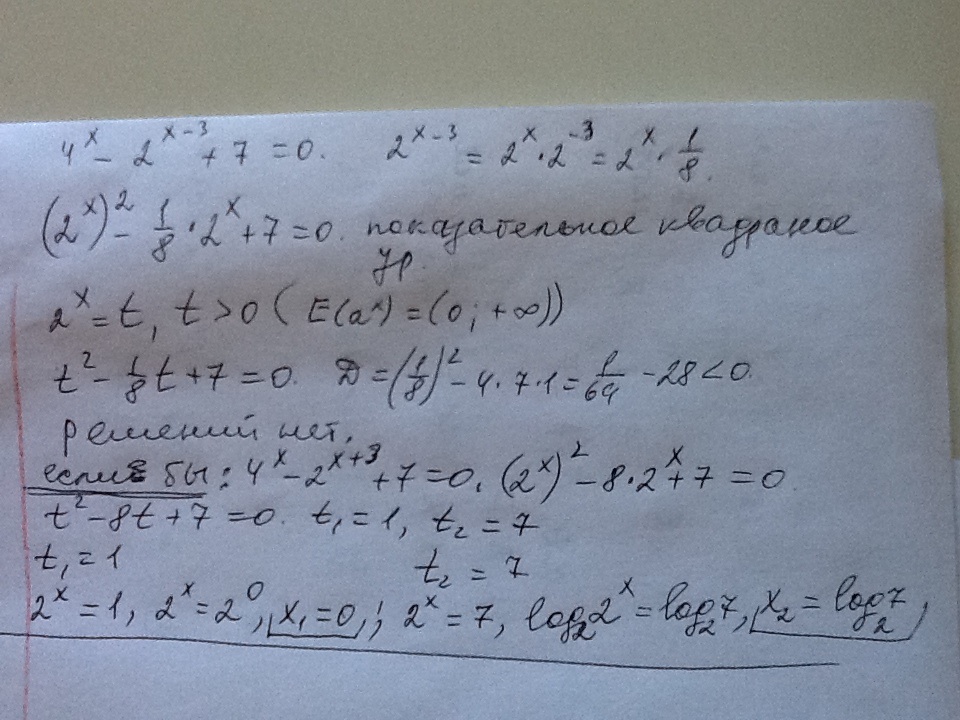 4ˣ - 2ˣ⁻³ + 7 = 0. 2ˣ⁻³ = 2ˣ · 2⁻³ = 2ˣ · 1/8.
(2ˣ)² - 1/8 · 2ˣ + 7 = 0. показательное квадратное
ур.
2ˣ = t, t > 0 ( E(aˣ) = (0; +∞))
t² - 1/8 t + 7 = 0. D = (1/8)² - 4 · 7 · 1 = 1/64 - 28 < 0.
решений нет.
если бы: 4ˣ - 2ˣ⁺³ + 7 = 0. (2ˣ)² - 8 · 2ˣ + 7 = 0.
t² - 8t + 7 = 0. t₁ = 1, t₂ = 7
t₁ = 1 t₂ = 7
2ˣ = 1, 2ˣ = 2⁰, x₁ = 0; 2ˣ = 7, log₂2ˣ = log₂7, x₂ = log₂7,